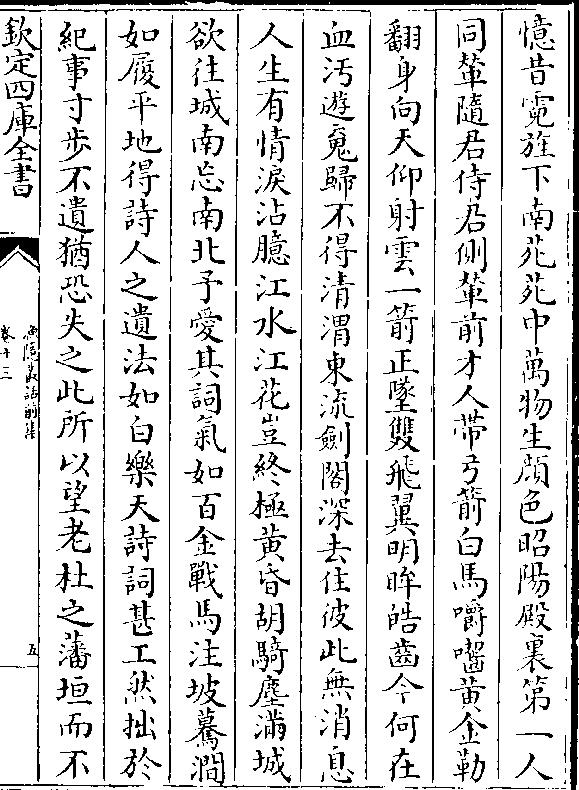 憶昔霓旌下南苑苑中萬物生顔色昭陽殿裏第一人
同輦隨君侍君側輦前才人帶弓箭白馬嚼囓黄金勒
翻身向天仰射雲一箭正墜雙飛翼明眸皓齒今何在
血汚遊䰟歸不得清渭東流劍閣深去住彼此無消息
人生有情淚沾臆江水江花豈終極黄昏胡騎塵滿城
欲往城南忘南北予愛其詞氣如百金戰馬注坡驀澗
如履平地得詩人之遺法如白樂天詩詞甚工然拙於
紀事寸步不遺猶恐失之此所以望老杜之藩垣而不
欽定四庫全書
漁隱叢話前集
卷十三
五